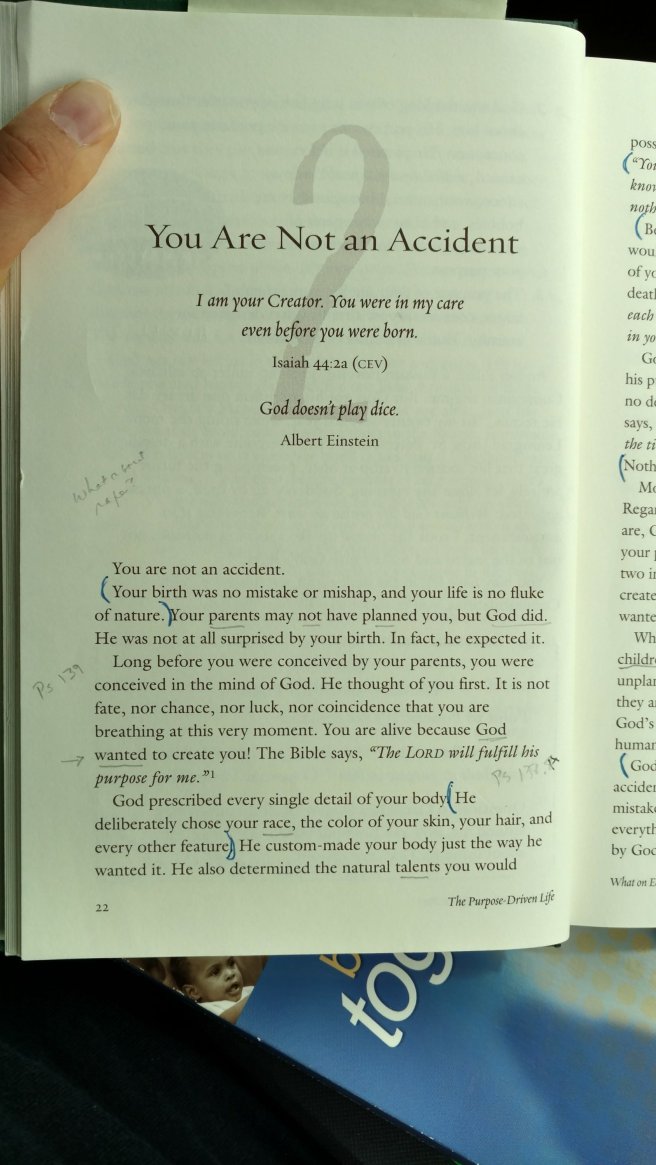 ?
You Are Not an Accident
I am your Creator. You were in my care
even before you were born.
Isaiah 44:2a (CEV)
God doesn't play dice.
Albert Einstein
What about
rape?
You are not an accident.
Your birth was no mistake or mishap, and your life is no fluke
of nature. Your parents may not have planned you, but God did.
He was not at all surprised by your birth. In fact, he expected it.
Long before you were conceived by your parents, you were
Ps 139
conceived in the mind of God. He thought of you first. It is not
fate, nor chance, nor luck, nor coincidence that you are
breathing at this very moment. You are alive because God
wanted to create you! The Bible says, “The LORD will fulfill his
purpose for me.”1
Ps 138
God prescribed every single detail of your body. He
deliberately chose your race, the color of your skin, your hair, and
every other feature. He custom-made your body just the way he
wanted it. He also determined the natural talents you would
22
The Purpose-Driven Life
poss
“You
know
noth
Be
wou
of yo
deat
each
in yo
Go
his p
no de
says,
the ti
Noth
Mo
Regar
are, G
your p
two in
create
wante
Wh
childre
unplan
they a
God's
human
God
accider
mistak
everyth
by God
What on E
tog